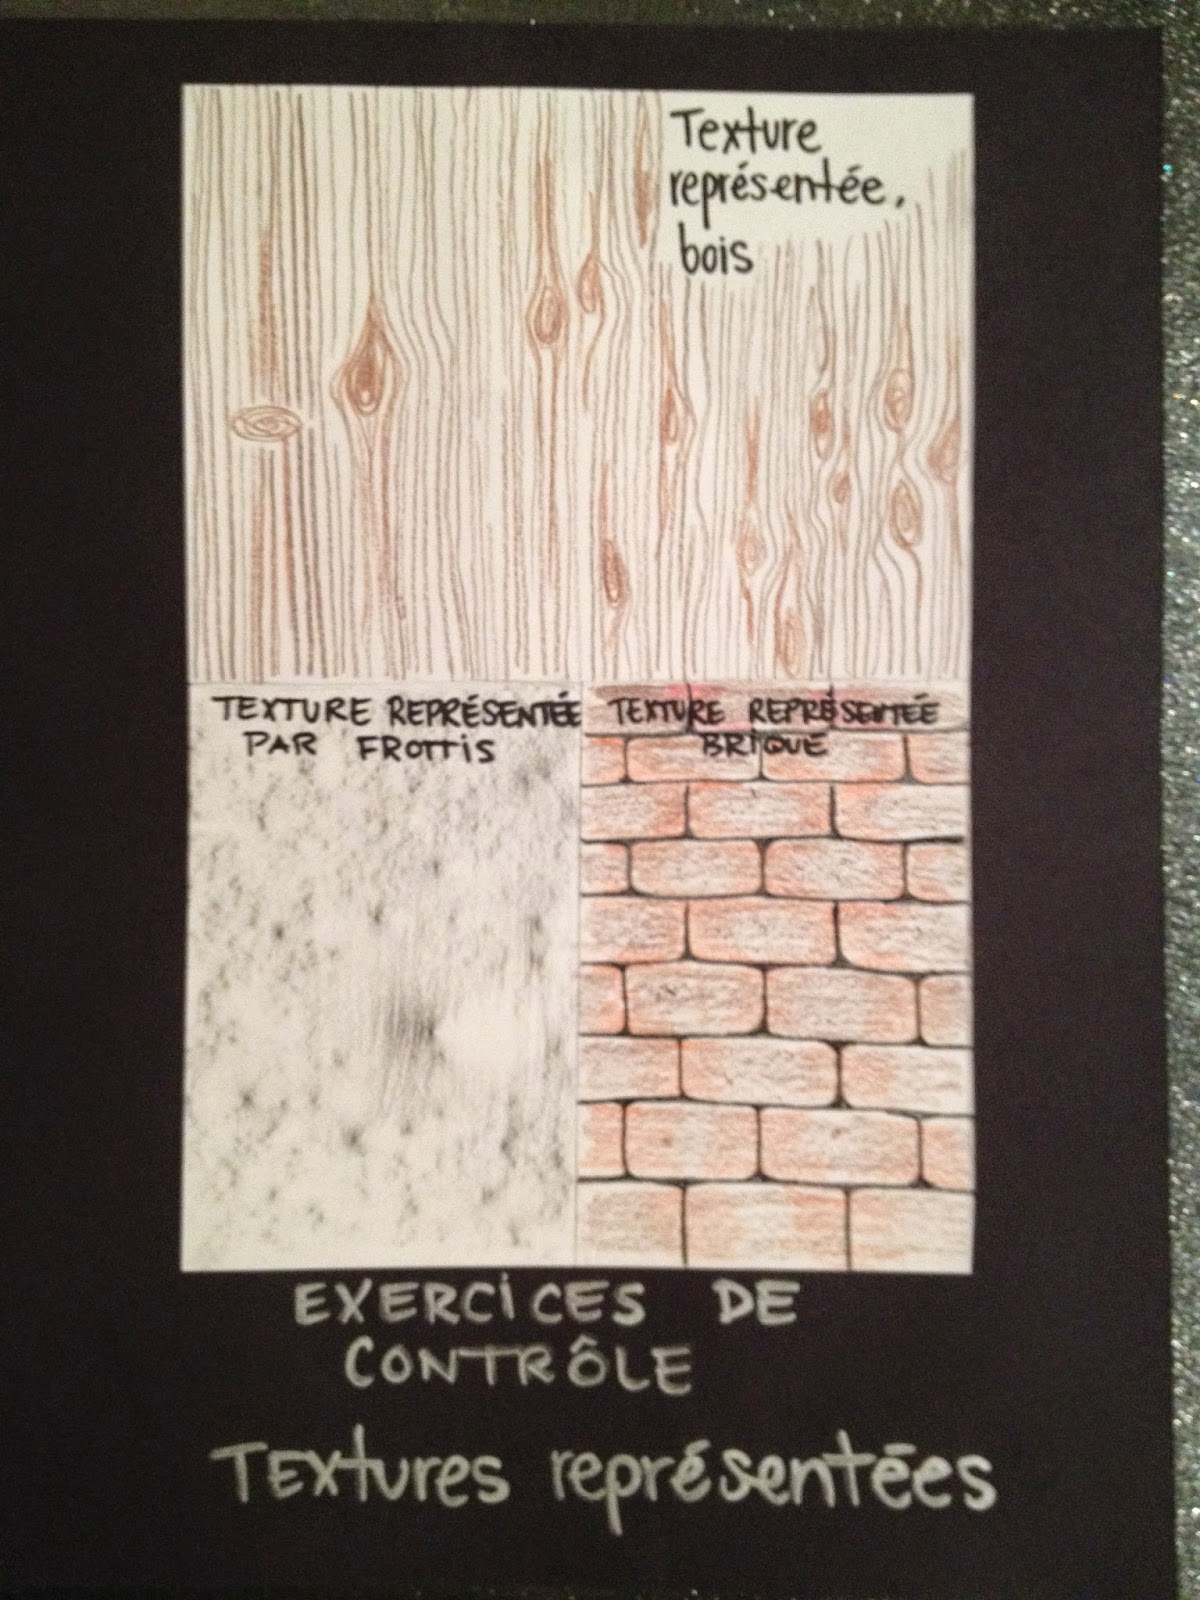 Texture
représentée,
bois
TEXTURE REPRÉSENTÉE
PAR FROTTIS
TEXTURE REPRÉSENTÉE
BRIQUE
EXERCICES DE
CONTRÔLE
TEXtures représentées